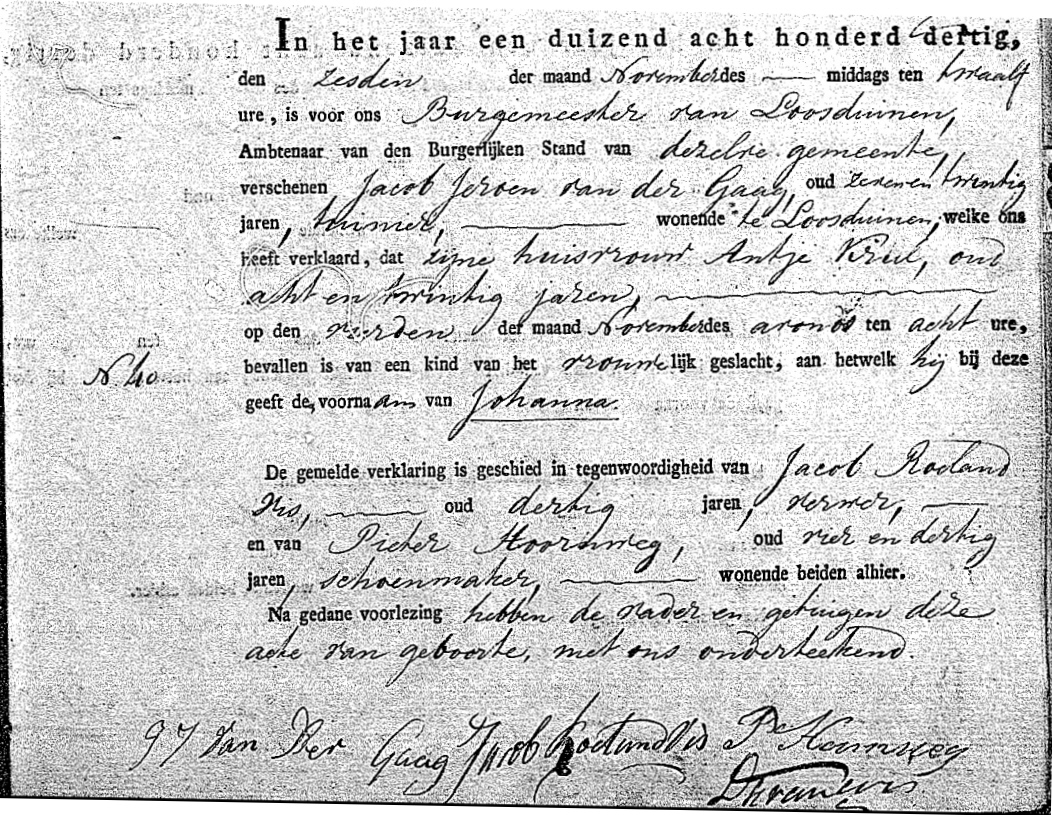 In het jaar een duizend acht honderd dertig,
den zesden der maand November des — middags ten twaalf
ure, is voor ons Burgemeester van Loosduinen,
Ambtenaar van den Burgerlijken Stand van dezelve gemeente,
verschenen Jacob Jeroen van der Gaag, oud zevenen twintig
jaren, tuinier, — wonende te Loosduinen, welke ons
heeft verklaard, dat zijne huisvrouw Antje Krul, oud
acht en twintig jaren, —
op den vierden der maand November des avonds ten acht ure,
bevallen is van een kind van het vrouwelijk geslacht, aan hetwelk hij bij deze
N 40
geeft de, voornaam van Johanna.
De gemelde verklaring is geschied in tegenwoordigheid van Jacob Roeland
Vis, — oud dertig jaren, verwer, —
en van Pieter Hoornweg, oud vier en dertig
jaren, schoenmaker, — wonende beiden alhier.
Na gedane voorlezing hebben de vader en getuigen deze
acte van geboorte, met ons onderteekend.
Van Der Gaag Jacob Roeland Vis P Hoornweg